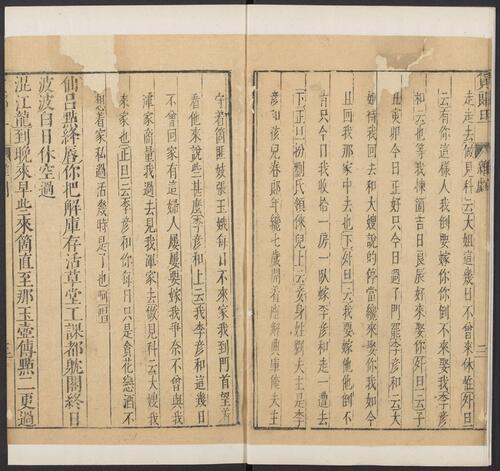 貨郎旦
雜劇
二
走走去做見科云大姐這幾日不曾來休怪外旦
云有你這樣人我倒要嫁你你倒不來娶我李彥
和云也等我揀箇吉日良辰好來娶你外旦云子
丑寅卯今日正好只今日過了門罷李彥和云大
姐待我回去和大嫂說的停當纔來娶你我如今
且回我那家中去也下外旦云我要嫁他他倒不
肯只今日我收拾一房一臥嫁李彥和走一遭去
下正旦扮劉氏領倈兒上云妾身姓劉夫主是李
彥和孩兒春郎年纔七歲開着座解典庫俺夫主
守着箇匪妓張玉娥每日不來家我到門首望着
看他來說些甚麽李彥和上云我李彥和這幾日
不曾回家有這婦人屢屢要嫁我爭奈不曾與我
渾家商量我過去見我渾家去做見科云大嫂我
來家也正旦云彥和你每日只是貪花戀酒不
想着家私過活幾時是了也呵唱
仙呂點絳唇你把解庫存活草堂工課都躭閣終日
波波白日休空過
混江龍到晚來早些來箇直至那玉壺傳點二更過